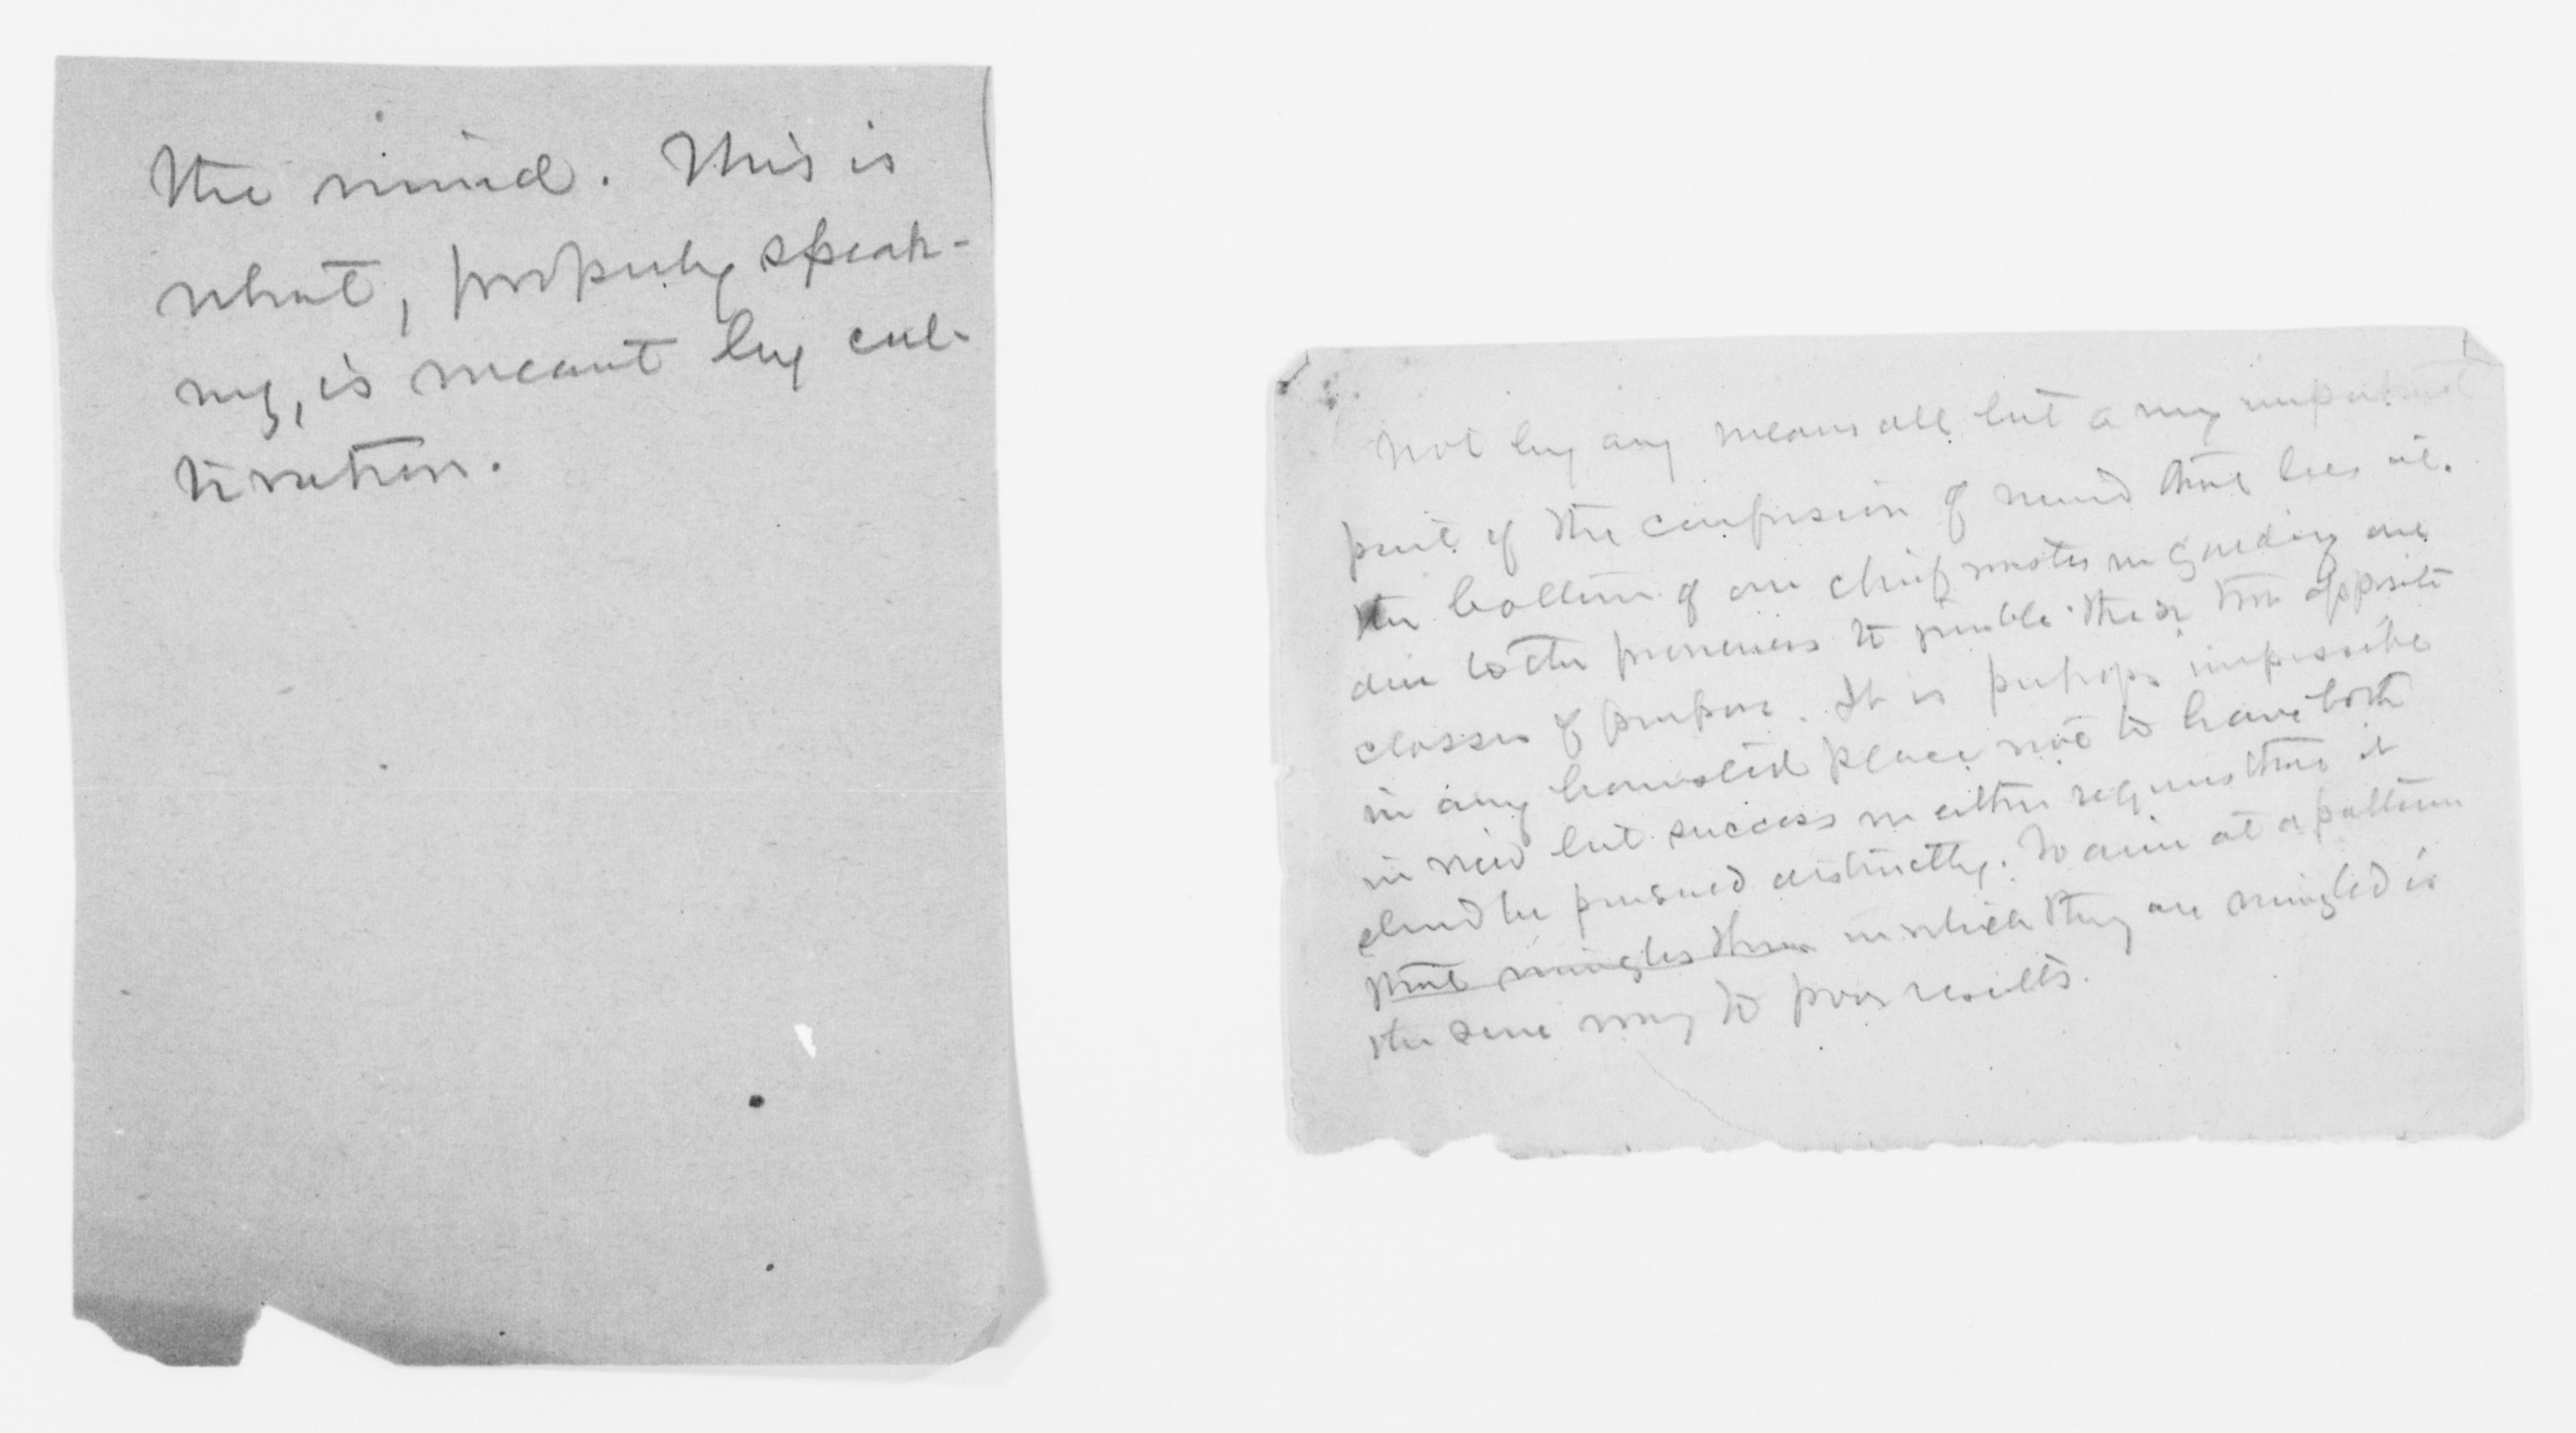 the mind. This is
what, properly speak-
ing, is meant by cul-
tivation.
Not by any means all but a very important
part of the confusion of mind that lies at
the bottom of our chief wastes in gardening are
due to the proneness to jumble these two opposite
classes of purpose. It is perhaps impossible
in any homestead place not to have both
in view but success in either requires that it
shud be pursued distinctly. To aim at a pattern
that mingles them in which they are mingled is
the sure way to poor results.